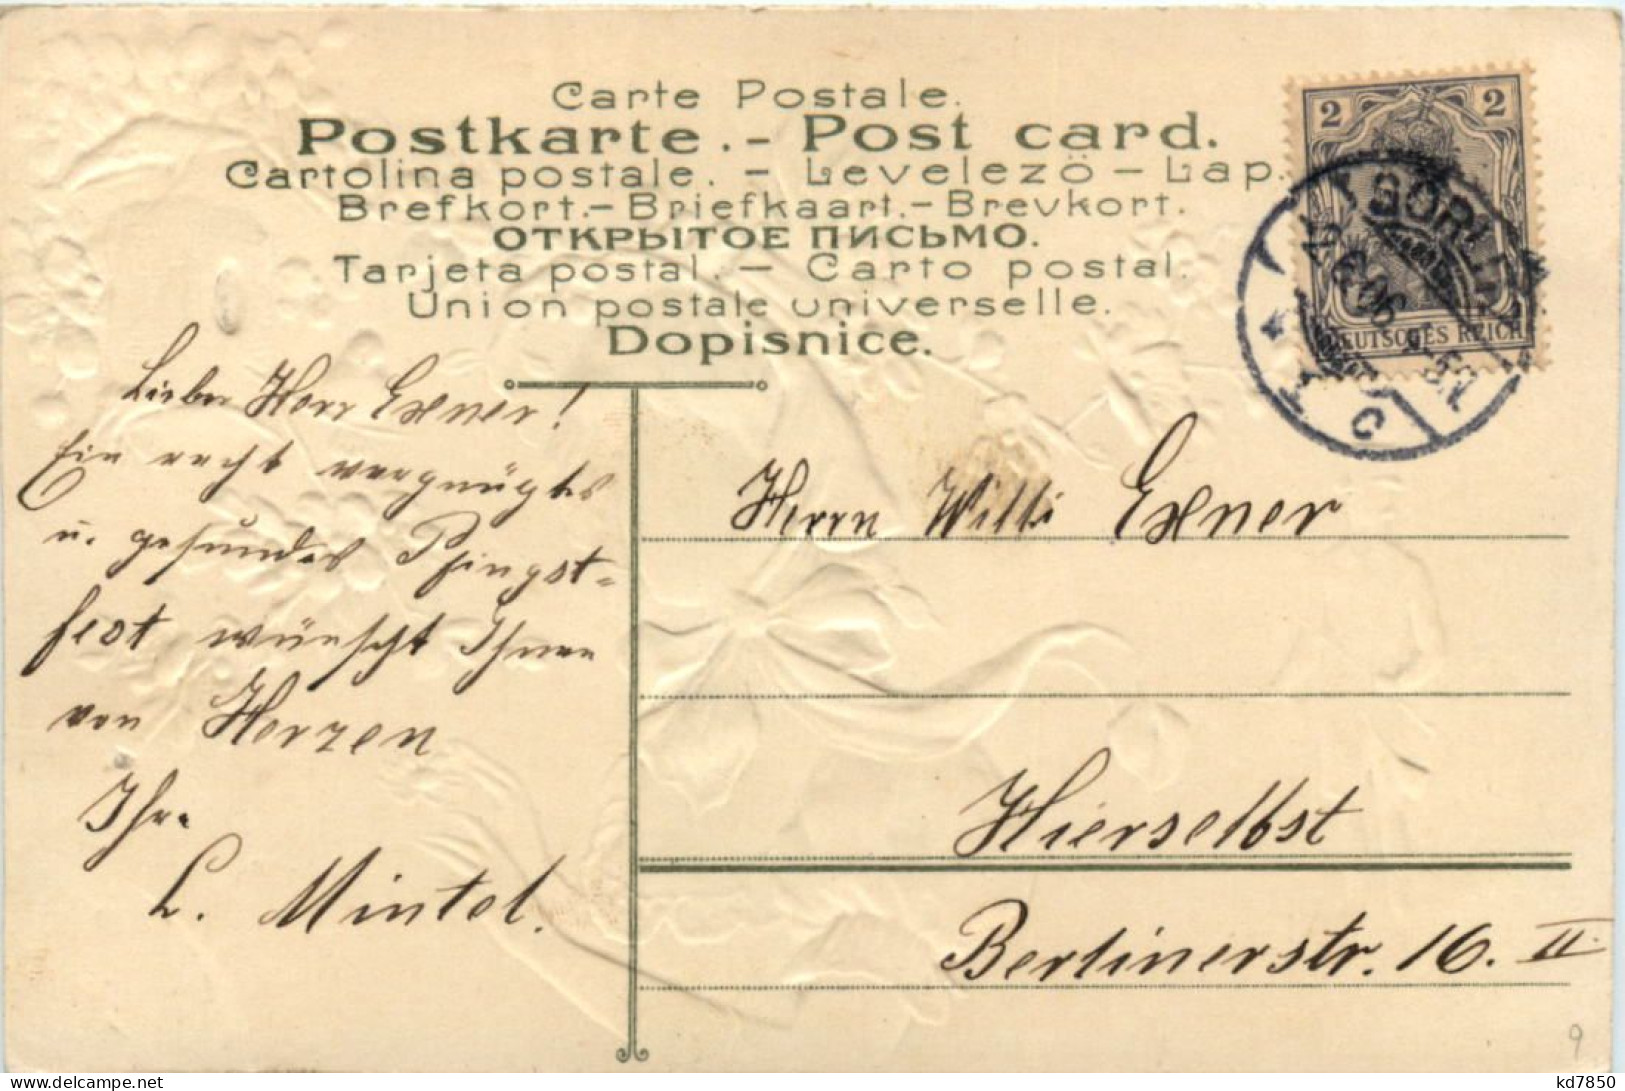 Carte Postale.
Postkarte. - Post card.
Cartolina postale. - Levelezö - Lap.
Brefkort. - Briefkaart. - Brevkort.
ОТКРЫТОЕ ПИСЬМО.
Tarjeta postal. - Carto postal.
Union postale universelle.
Dopisnice.
2 2
DEUTSCHES REICH
GÖRLITZ
6.06
C
Lieber Herr Exner!
Ein recht vergnügtes
u. gesundes Pfingst-
fest wünscht Ihnen
von Herzen
Ihr.
L. Mintel.
Herrn Willi Exner
Hierselbst
Berlinerstr. 16. II.
9
kd7850